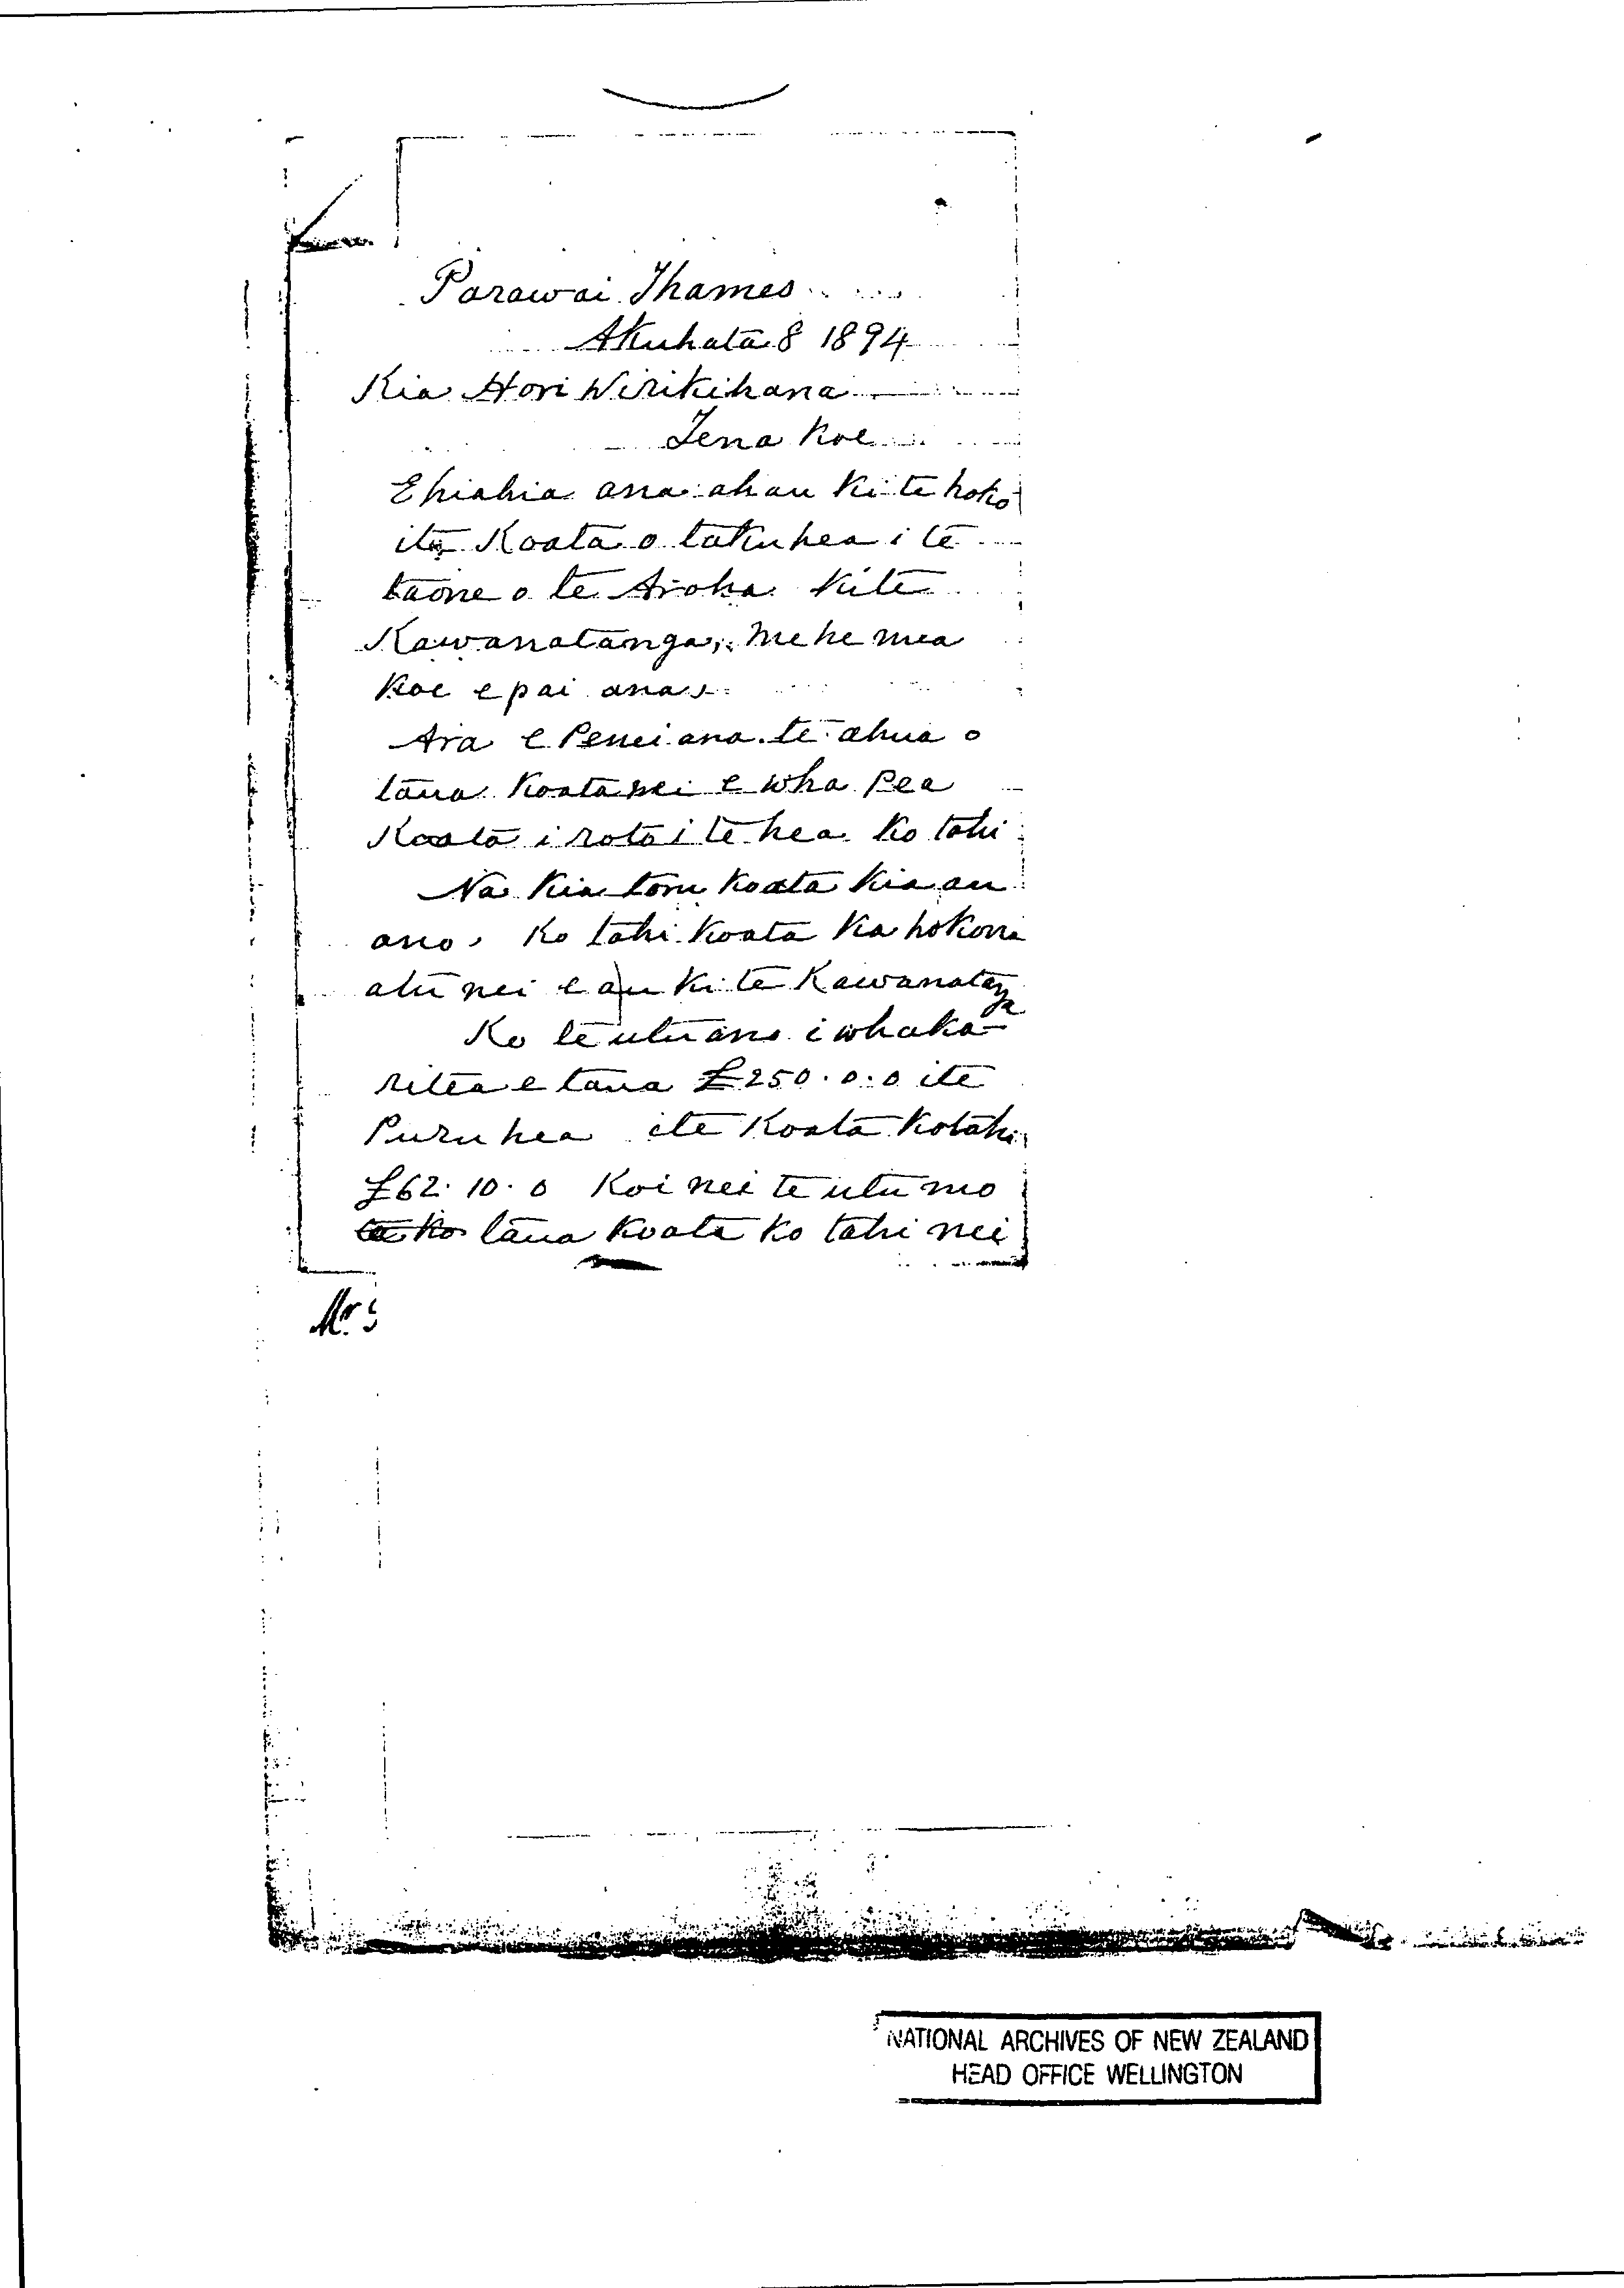 Parawai Thames
Akuhata 8 1894
Kia Hori Wirikihana
Tena Koe
Ehiahia ana ahau ki te hoko
ite Koata o taku hea i te
taone o te Aroha kite
Kawanatanga, mehe mea
Koe e pai ana
Ara e Penei ana te ahua o
taua Koata nei e wha pea
Koata i roto i te hea ko tahi
Na kia toru koata kia au
ano, Ko tahi koata ka hokona
atu nei e au ki te Kawanatanga
Ko te utu ano i whaka-
ritea e taua £250.0.0 ite
Puru hea ite Koata kotahi
£62.10.0 Koi nei te utu mo
taua koata ko tahi nei
NATIONAL ARCHIVES OF NEW ZEALAND
HEAD OFFICE WELLINGTON